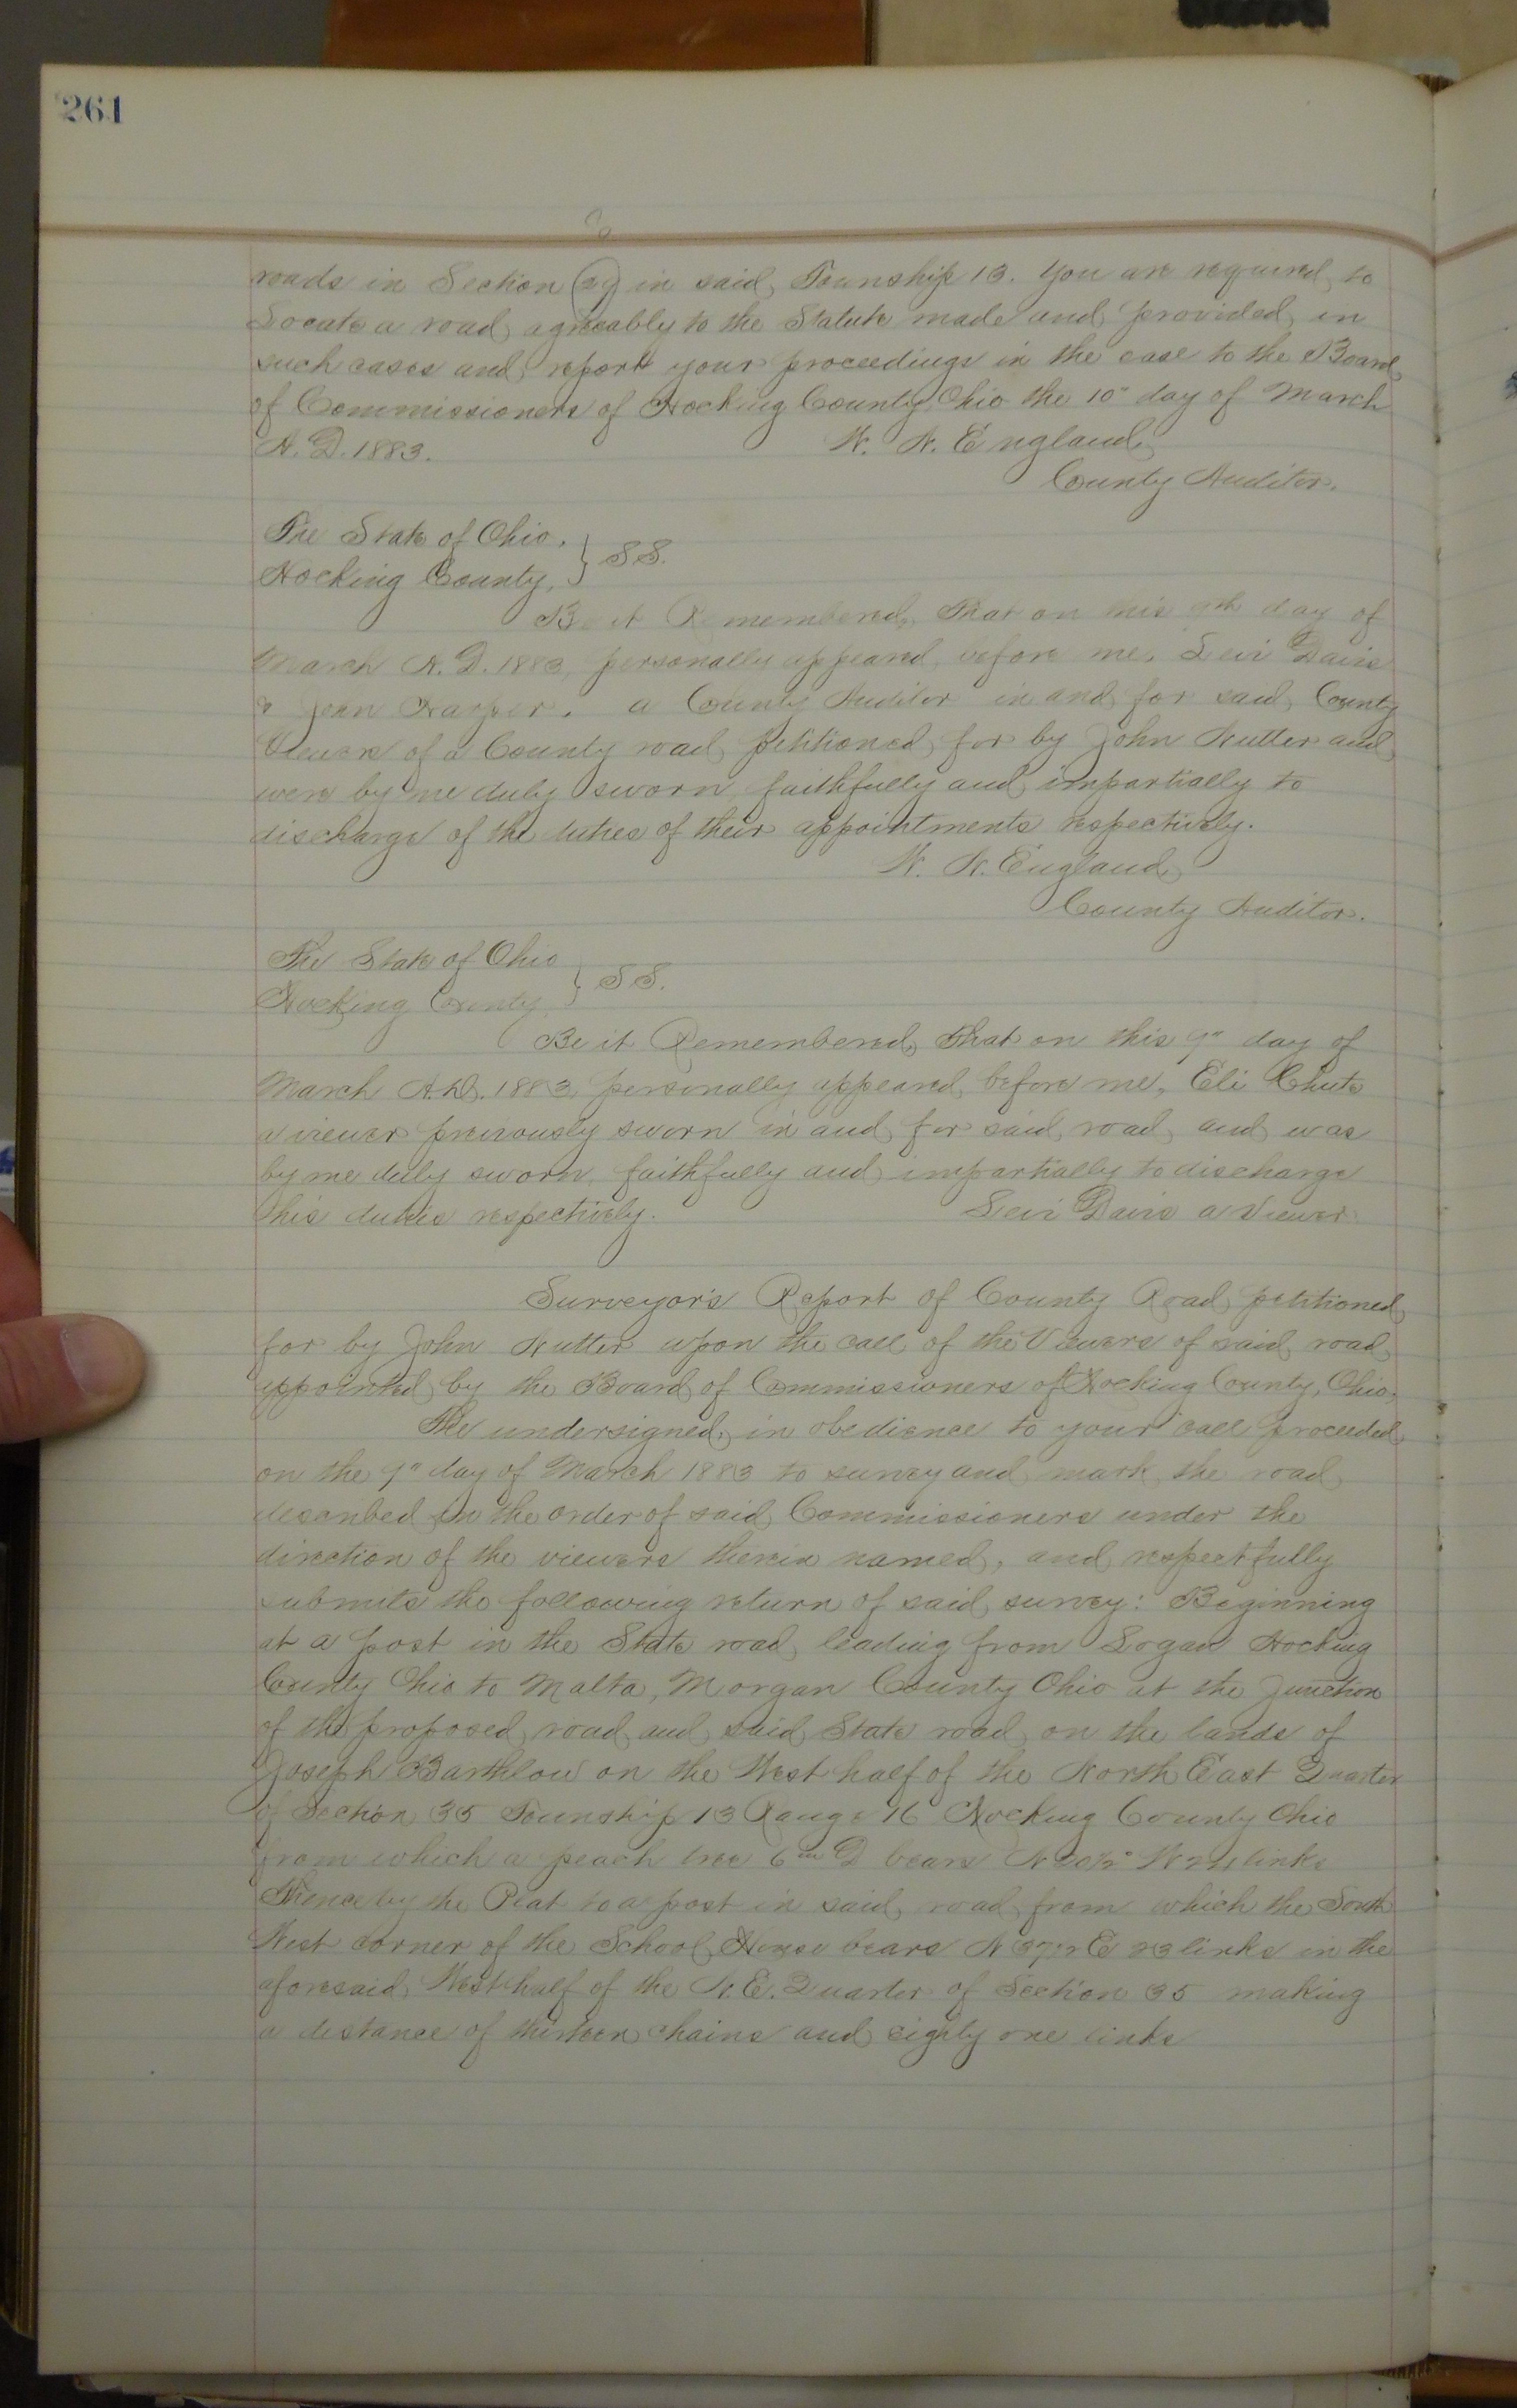 261
roads in Section (29) in said Township 13. You are required to
Locate a road agreeably to the Statute made and provided in
such cases and report your proceedings in the case to the Board
of Commissioners of Hocking County Ohio the 10" day of March
A. D. 1883. England
County Auditor.
The State of Ohio,
Hocking County, } SS.
Be it Remembered, That on this 9th day of
March A. D. 1883, personally appeared before me, Levi Davis
& John Harper. a County Auditor in and for said County
Viewers of a County road petitioned for by John Nutter and
were by me duly sworn faithfully and impartially to
discharge of the duties of their appointments respectively.
England
County Auditor.
The State of Ohio
Hocking County } SS.
Be it Remembered, that on this 9" day of
March A. D. 1883, personally appeared before me, Eli Chute
a viewer previously sworn in and for said road and was
by me duly sworn faithfully and impartially to discharge
his duties respectively. Levi Davis a Viewer
Surveyor's Report of County Road petitioned
for by John Nutter upon the call of the Viewers of said road
appointed by the Board of Commissioners of Hocking County, Ohio,
The undersigned, in obedience to your call proceeded
on the 9" day of March 1883 to survey and mark the road
described in the order of said Commissioners under the
direction of the viewers therein named, and respectfully
submits the following return of said survey: Beginning
at a post in the State road leading from Logan Hocking
County Ohio to Malta, Morgan County Ohio at the Junction
of the proposed road and said State road on the lands of
Joseph Barthlow on the West half of the North East Quarter
of Section 35 Township 13 Range 16 Hocking County Ohio
from which a peach tree 6 in D bears N W links
Thence by the Plat to a post in said road from which the South
West corner of the School House bears N 37½ E 23 links in the
aforesaid West half of the N. E. Quarter of Section 35 making
a distance of thirteen chains and eighty one links